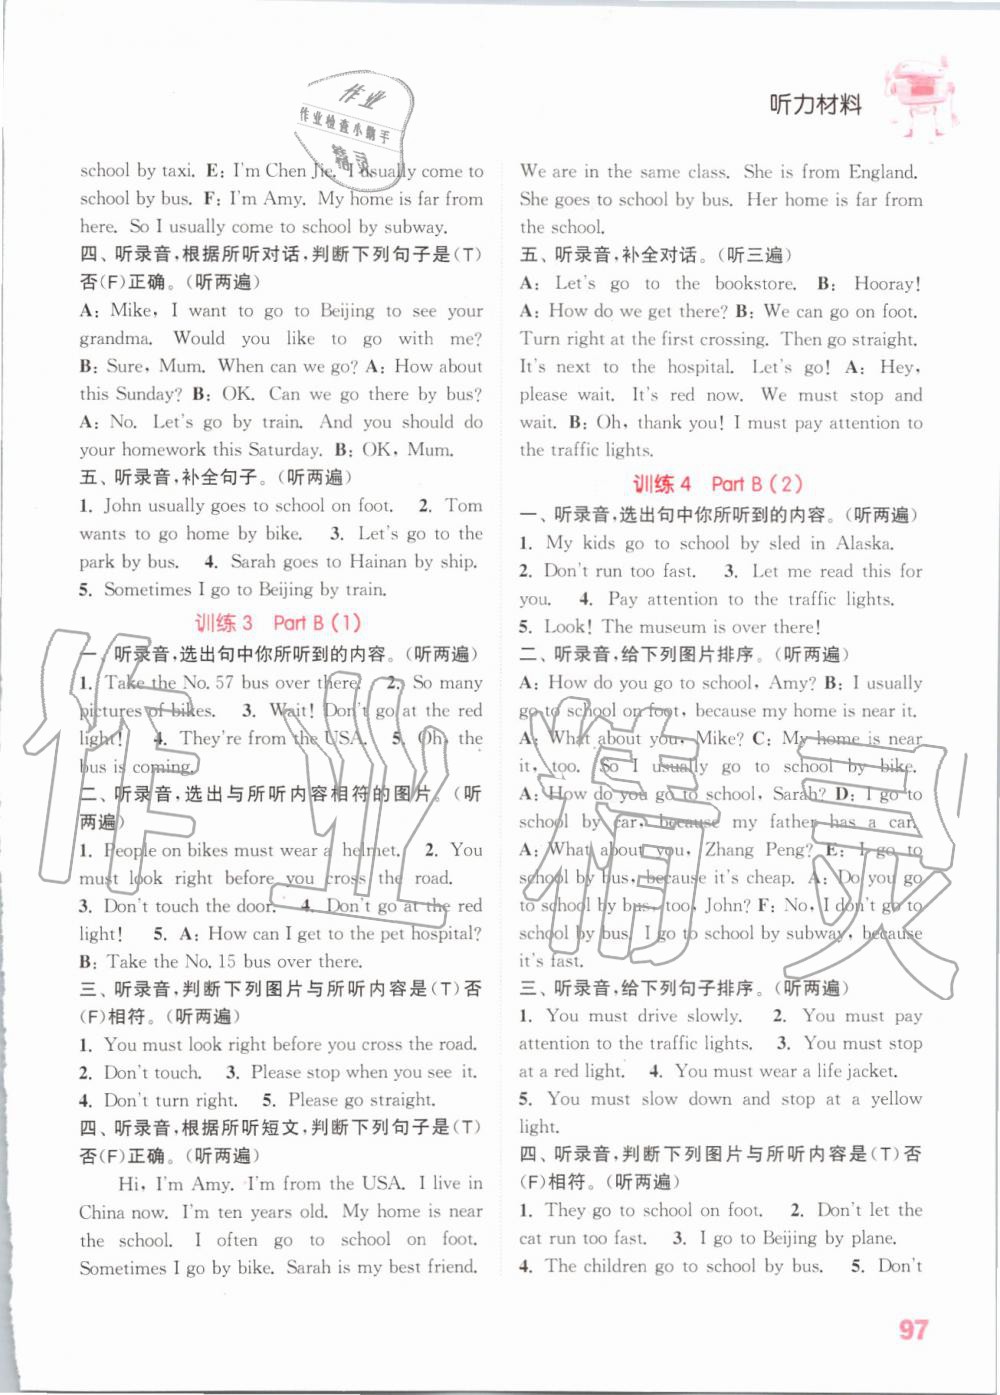 听力材料
作业
作业检查小助手
精灵
school by taxi. E: I'm Chen Jie. I usually come to
school by bus. F: I'm Amy. My home is far from
here. So I usually come to school by subway.
四、听录音,根据所听对话,判断下列句子是(T)
否(F)正确。(听两遍)
A: Mike, I want to go to Beijing to see your
grandma. Would you like to go with me?
B: Sure, Mum. When can we go? A: How about
this Sunday? B: OK. Can we go there by bus?
A: No. Let's go by train. And you should do
your homework this Saturday. B: OK, Mum.
五、听录音,补全句子。(听两遍)
1. John usually goes to school on foot. 2. Tom
wants to go home by bike. 3. Let's go to the
park by bus. 4. Sarah goes to Hainan by ship.
5. Sometimes I go to Beijing by train.
训练3 Part B(1)
一、听录音,选出句中你所听到的内容。(听两遍)
1. Take the No. 57 bus over there! 2. So many
pictures of bikes. 3. Wait! Don't go at the red
light! 4. They're from the USA. 5. Oh, the
bus is coming.
二、听录音,选出与所听内容相符的图片。(听
两遍)
1. People on bikes must wear a helmet. 2. You
must look right before you cross the road.
3. Don't touch the door. 4. Don't go at the red
light! 5. A: How can I get to the pet hospital?
B: Take the No. 15 bus over there.
三、听录音,判断下列图片与所听内容是(T)否
(F)相符。(听两遍)
1. You must look right before you cross the road.
2. Don't touch. 3. Please stop when you see it.
4. Don't turn right. 5. Please go straight.
四、听录音,根据所听短文,判断下列句子是(T)
否(F)正确。(听两遍)
Hi, I'm Amy. I'm from the USA. I live in
China now. I'm ten years old. My home is near
the school. I often go to school on foot.
Sometimes I go by bike. Sarah is my best friend.
We are in the same class. She is from England.
She goes to school by bus. Her home is far from
the school.
五、听录音,补全对话。(听三遍)
A: Let's go to the bookstore. B: Hooray!
A: How do we get there? B: We can go on foot.
Turn right at the first crossing. Then go straight.
It's next to the hospital. Let's go! A: Hey,
please wait. It's red now. We must stop and
wait. B: Oh, thank you! I must pay attention to
the traffic lights.
训练4 Part B(2)
一、听录音,选出句中你所听到的内容。(听两遍)
1. My kids go to school by sled in Alaska.
2. Don't run too fast. 3. Let me read this for
you. 4. Pay attention to the traffic lights.
5. Look! The museum is over there!
二、听录音,给下列图片排序。(听两遍)
A: How do you go to school, Amy? B: I usually
go to school on foot, because my home is near it.
A: What about you, Mike? C: My home is near
it, too. So I usually go to school by bike.
A: How do you go to school, Sarah? D: I go to
school by car, because my father has a car.
A: What about you, Zhang Peng? E: I go to
school by bus, because it's cheap. A: Do you go
to school by bus, too, John? F: No, I don't go to
school by bus. I go to school by subway, because
it's fast.
三、听录音,给下列句子排序。(听两遍)
1. You must drive slowly. 2. You must pay
attention to the traffic lights. 3. You must stop
at a red light. 4. You must wear a life jacket.
5. You must slow down and stop at a yellow
light.
四、听录音,判断下列图片与所听内容是(T)否
(F)相符。(听两遍)
1. They go to school on foot. 2. Don't let the
cat run too fast. 3. I go to Beijing by plane.
4. The children go to school by bus. 5. Don't
作业精灵
97